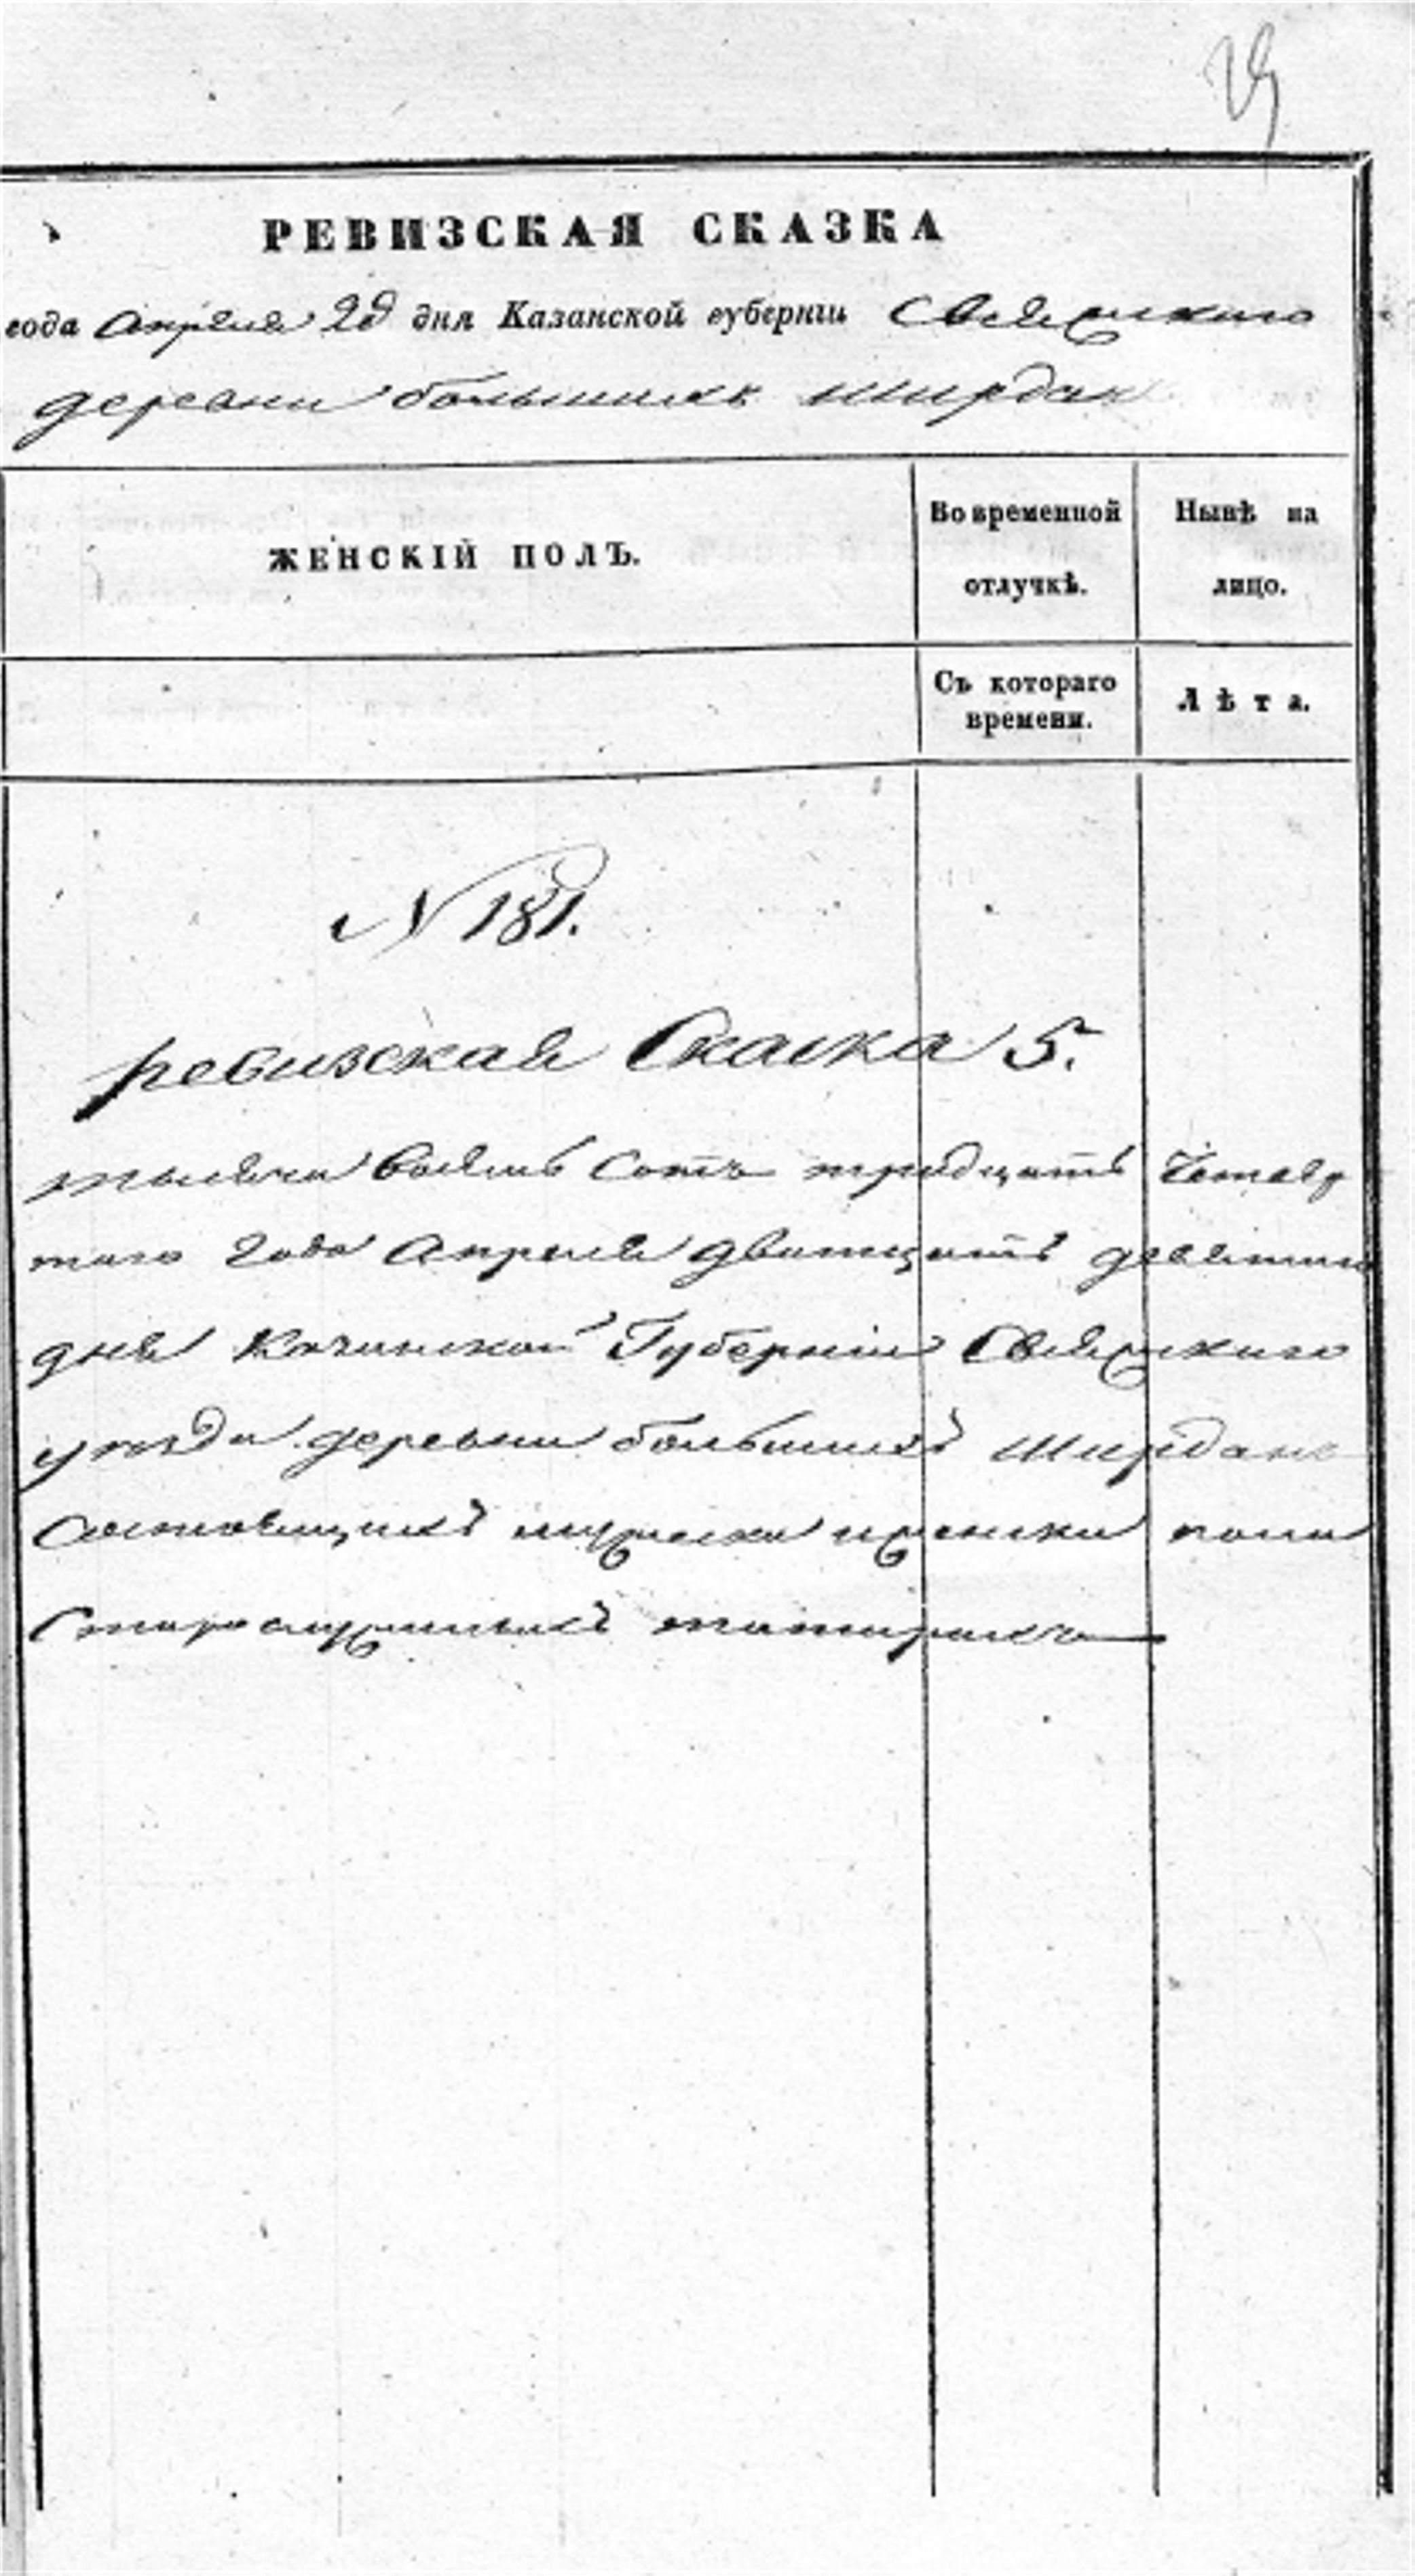 29
РЕВИЗСКАЯ СКАЗКА
года Апреля 29 дня Казанской губерніи Свіяжскаго
деревни большихъ ширдан
ЖЕНСКІЙ ПОЛЪ.
Во временной отлучкѣ.
Нынѣ на лицо.
Съ котораго времени.
Лѣта.
N 181.
ревизская Скаска 5.
тысяча восемь сотъ тридцать четвер
таго года Апреля дватцать девятаго
дня Казанской Губерніи Свіяжскаго
уезда деревни большихъ Ширданъ
состоящихъ мужеска иженска пола
Старослужилыхъ татарахъ